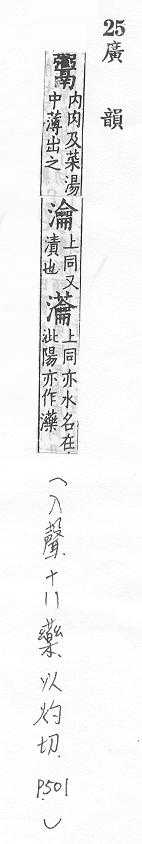 25 廣韻
内肉及菜湯
中薄出之
瀹
上同又
漬也
上同亦水名在
沘陽亦作
(入聲、十八藥、以灼切、P.501)